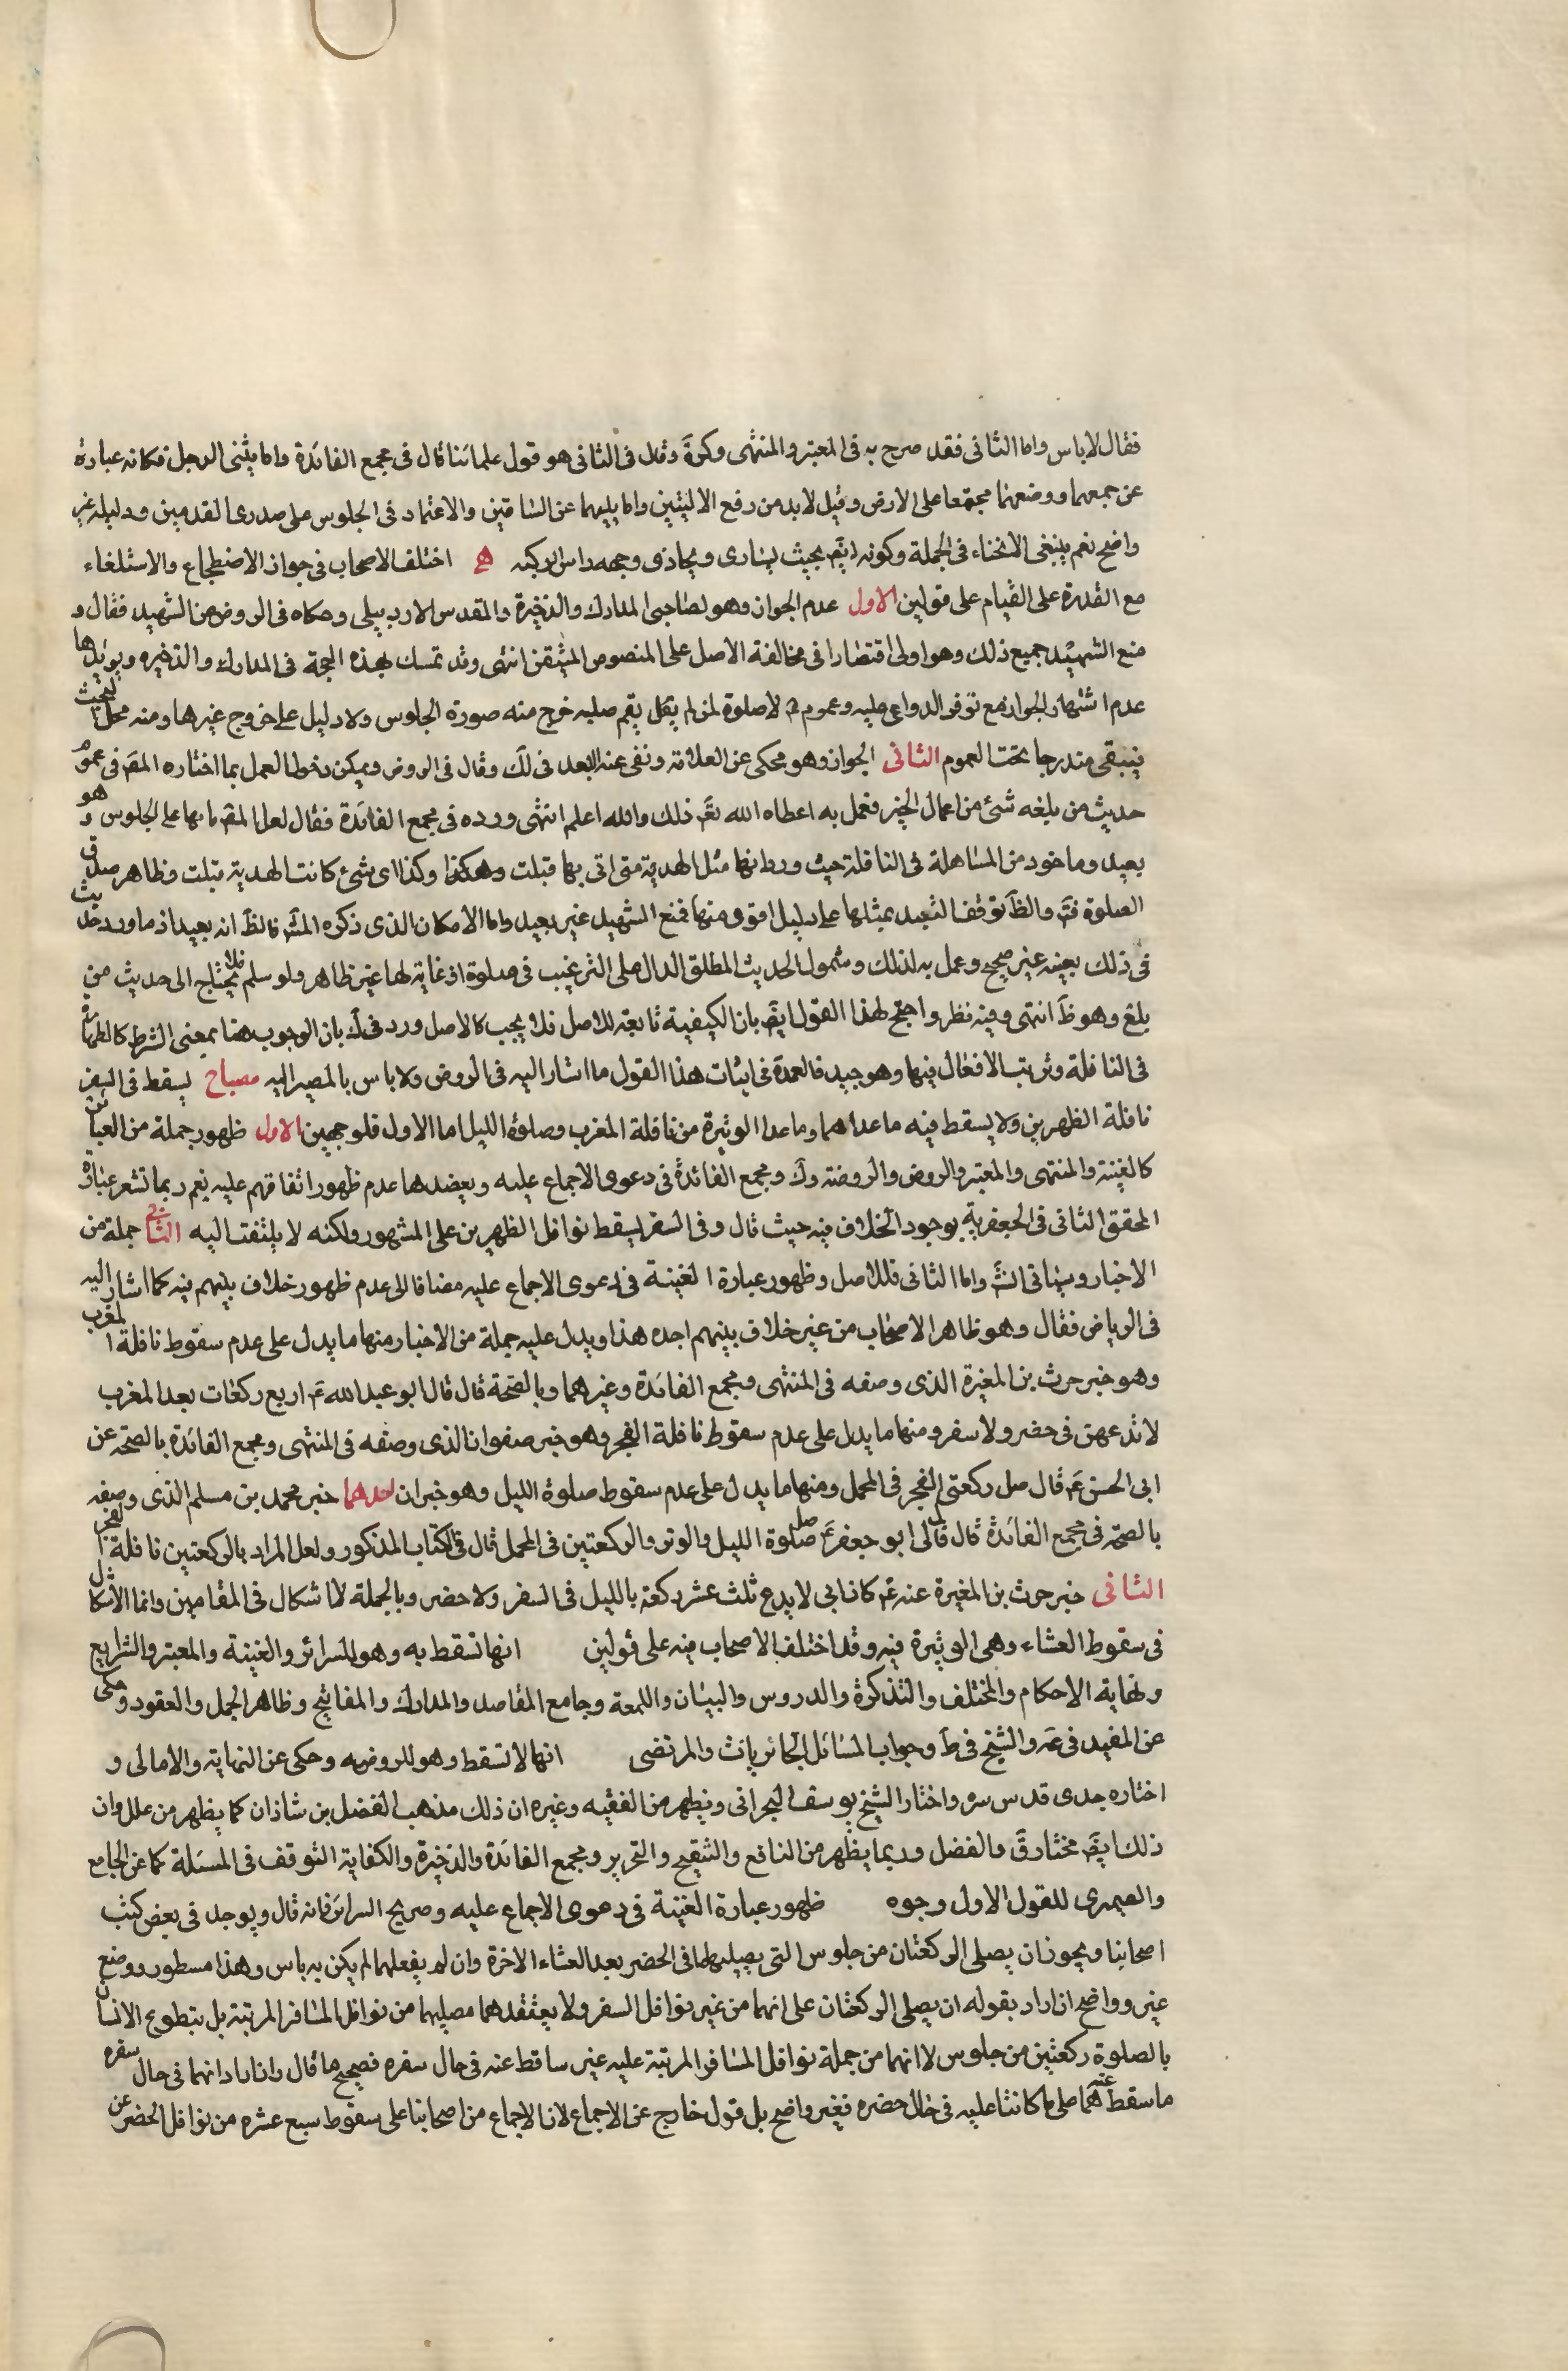 فقال لاباس واما الثانى فقد صرح به فى المعتبر والمنتهى وكرة وقال فى الثانى هو قول علمائنا قال فى مجمع الفائدة واما يثنى الرجل فكانه عبارة
عن جمعهما ووضعهما مجتمعا على الارض وقيل لابد من رفع الاليتين واما يليهما عن الساقين والاعتماد فى الجلوس على صدرى القدمين ودليله غير
واضح نعم ينبغى الانحناء فى الجملة وكونه ايضَ بحيث يساوى ويحاذى وجهه راس الركبه هـ اختلف الاصحاب فى جواز الاضطجاع والاستلقاء
مع القدرة على القيام على قولين الاول عدم الجواز وهو لصاحبى المدارك والذخيرة والمقدس الاردبيلى وحكاه فى الروض عن الشهيد فقال و
منع الشهيد جميع ذلك وهو اولى اقتصارا فى مخالفة الاصل على المنصوص المتيقن انتهى وقد تمسك بهذه الحجة فى المدارك والذخيره ويؤيدها
عدم اشتهار الجواز مع توفر الدواعى عليه وعموم لا صلوة لمن لم يقم صلبه خرج منه صورة الجلوس ولا دليل على خروج غيرها ومنه محل البحث
فيبقى مندرجا تحت العموم الثانى الجواز وهو محكى عن العلامة ونفى عنه البعد فى لك وقال فى الروض ويمكن دخول العمل بما اختاره المصَ فى عموم
حديث من بلغه شئ من اعمال الخير فعمل به اعطاه الله تعَ ذلك والله اعلم انتهى ورده فى مجمع الفائدة فقال لعل المصَ قاسها على الجلوس وهو
بعيد وماخوذ من المساهلة فى النافلة حيث ورد انها مثل الهدية متى اتى بها قبلت وهكذا وكذا اى شئ كانت الهدية قبلت وظاهر صدق
الصلوة فتَ والظَ توقف التعبد بمثلها على دليل اقوى منها فمنع الشهيد غير بعيد واما الامكان الذى ذكره الشَ فالظَ انه بعيد اذ ما ورد حديث
فى ذلك بعينه غير صحيح وعمل به لذلك وشمول الحديث المطلق الدال على الترغيب فى صلوة اذ غايته لها غير ظاهر ولو سلم فلا يحتاج الى حديث من
بلغ وهو ظَ انتهى وفيه نظر واحتج لهذا القول ايضَ بان الكيفية تابعة للاصل فلا يجب كالاصل ورد فى لَك بان الوجوب هنا بمعنى الشرط كالطهارة
فى النافلة وترتيب الافعال فيها وهو جيد فالعمدة فى اثبات هذا القول ما اشار اليه فى الروض ولا باس بالمصير اليه مصباح يسقط فى السفر
نافلة الظهرين ولا يسقط فيه ما عداهما وما عدا الوتيرة من نافلة المغرب وصلوة الليل اما الاول فلوجهين الاول ظهور جملة من العبائر
كالغنية والمنتهى والمعتبر والروض والروضة ولَك ومجمع الفائدة فى دعوى الاجماع عليه ويعضدها عدم ظهور اتفاقهم عليه نعم ربما تشعر عبارة
المحقق الثانى فى الجعفرية بوجود الخلاف فيه حيث قال وفى السفر يسقط نوافل الظهرين على المشهور ولكنه لا يلتفت اليه الثانى جملة من
الاخبار وسياتى الشَ واما الثانى فللاصل وظهور عبارة الغنية فى دعوى الاجماع عليه مضافا الى عدم ظهور خلاف بينهم فيه كما اشار اليه
فى الرياض فقال وهو ظاهر الاصحاب من غير خلاف بينهم اجده هذا ويدل عليه جملة من الاخبار منها ما يدل على عدم سقوط نافلة المغرب
وهو خبر حرث بن المغيرة الذى وصفه فى المنتهى ومجمع الفائدة وغيرهما وبالصحة قال قال ابو عبد الله عَ اربع ركعات بعد المغرب
لا تدعهن فى حضر ولا سفر ومنها ما يدل على عدم سقوط نافلة الفجر وهو خبر صفوان الذى وصفه فى المنتهى ومجمع الفائدة بالصحة عن
ابى الحسن عَ قال صل ركعتى الفجر فى المحمل ومنها ما يدل على عدم سقوط صلوة الليل وهو خبران احدهما خبر محمد بن مسلم الذى وصفه
بالصحة فى مجمع الفائدة قال قال لى ابو جعفر عَ صل صلوة الليل والوتر والركعتين فى المحمل قال فى الكتاب المذكور ولعل المراد بالركعتين نافلة الفجر
الثانى خبر حرث بن المغيرة عنه عَ كان ابى لا يدع ثلث عشر ركعة بالليل فى السفر ولا حضر وبالجملة لا اشكال فى المقامين وانما الاشكال
فى سقوط العشاء وهى الوتيرة فيه وقد اختلف الاصحاب فيه على قولين انها تسقط به وهو للسرائر والغنية والمعتبر والشرايع
ونهاية الاحكام والمختلف والتذكرة والدروس والبيان واللمعة وجامع المقاصد والمدارك والمفاتيح وظاهر الجمل والعقود وحكى
عن المفيد فى عه والشيخ فى طَ وجواب المسائل الحائريات والمرتضى انها لا تسقط وهو للروضه وحكى عن النهاية والامالى و
اختاره جدى قدس سره واختار الشيخ يوسف البحرانى ويظهر من الفقيه وغيره ان ذلك مذهب الفضل بن شاذان كما يظهر من علل وان
ذلك ايضَ مختار قَ والفضل وربما يظهر من النافع والتنقيح والتحرير ومجمع الفائدة والذخيرة والكفاية التوقف فى المسئلة كما عن الجامع
والصيمرى للقول الاول وجوه ظهور عبارة الغنية فى دعوى الاجماع عليه وصريح السرائر فانه قال ويوجد فى بعض كتب
اصحابنا ويجوز ان يصلى الركعتان من جلوس التى يصليهما فى الحضر بعد العشاء الاخرة وان لم يفعلهما لم يكن به باس وهذا مسطور ووضع
غير وواضح ان اراد بقوله ان يصلى الركعتان على انهما من غير نوافل السفر ولا يعتقدهما مصليهما من نوافل المسافر المرتبة بل يتطوع الانسان
بالصلوة ركعتين من جلوس لا انهما من جملة نوافل المسافر المرتبة عليه غير ساقط عنه فى حال سفره فصحيح ما قال وان اراد انهما فى حال سفره
ما سقط عنه هما على ما كانتا عليه فى حال حضره فغير واضح بل قول خارج عن الاجماع لان الاجماع من اصحابنا على سقوط سبع عشره من نوافل الحضر عن